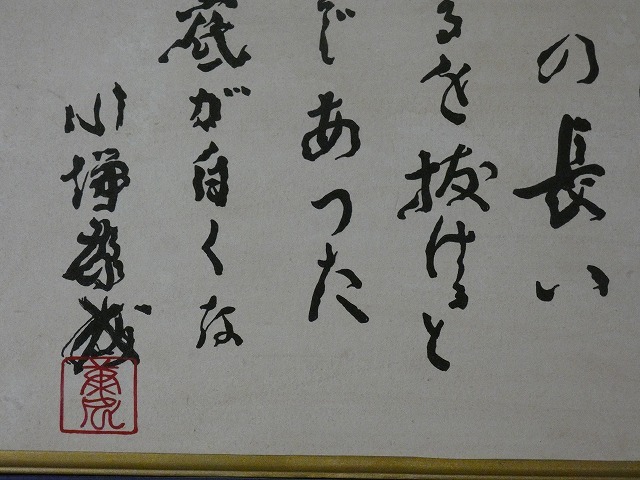 の長い
るを抜けると
であつた
底が白くな
川端康成
康成